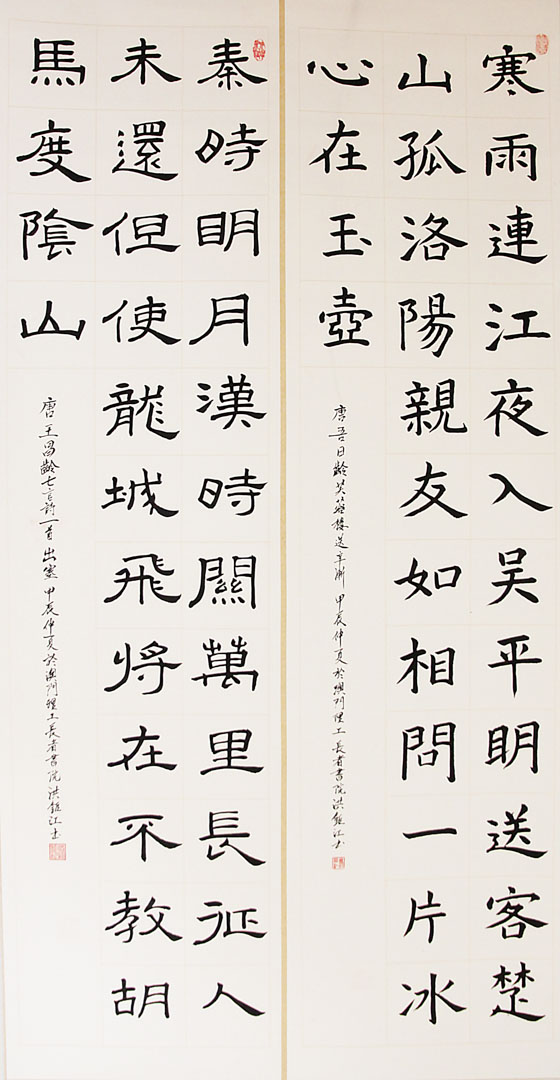 寒雨連江夜入吴平明送客楚
山孤洛陽親友如相問一片冰
心在玉壺
唐 吾日齡芙蓉樓送辛漸 甲辰仲夏於澳門理工長者書院洪錐江书
秦時明月漢時關萬里長征人
未還但使龍城飛將在不教胡
馬度陰山
唐王昌齡七言詩一首 出塞 甲辰仲夏於澳門理工長者書院 洪錐江书